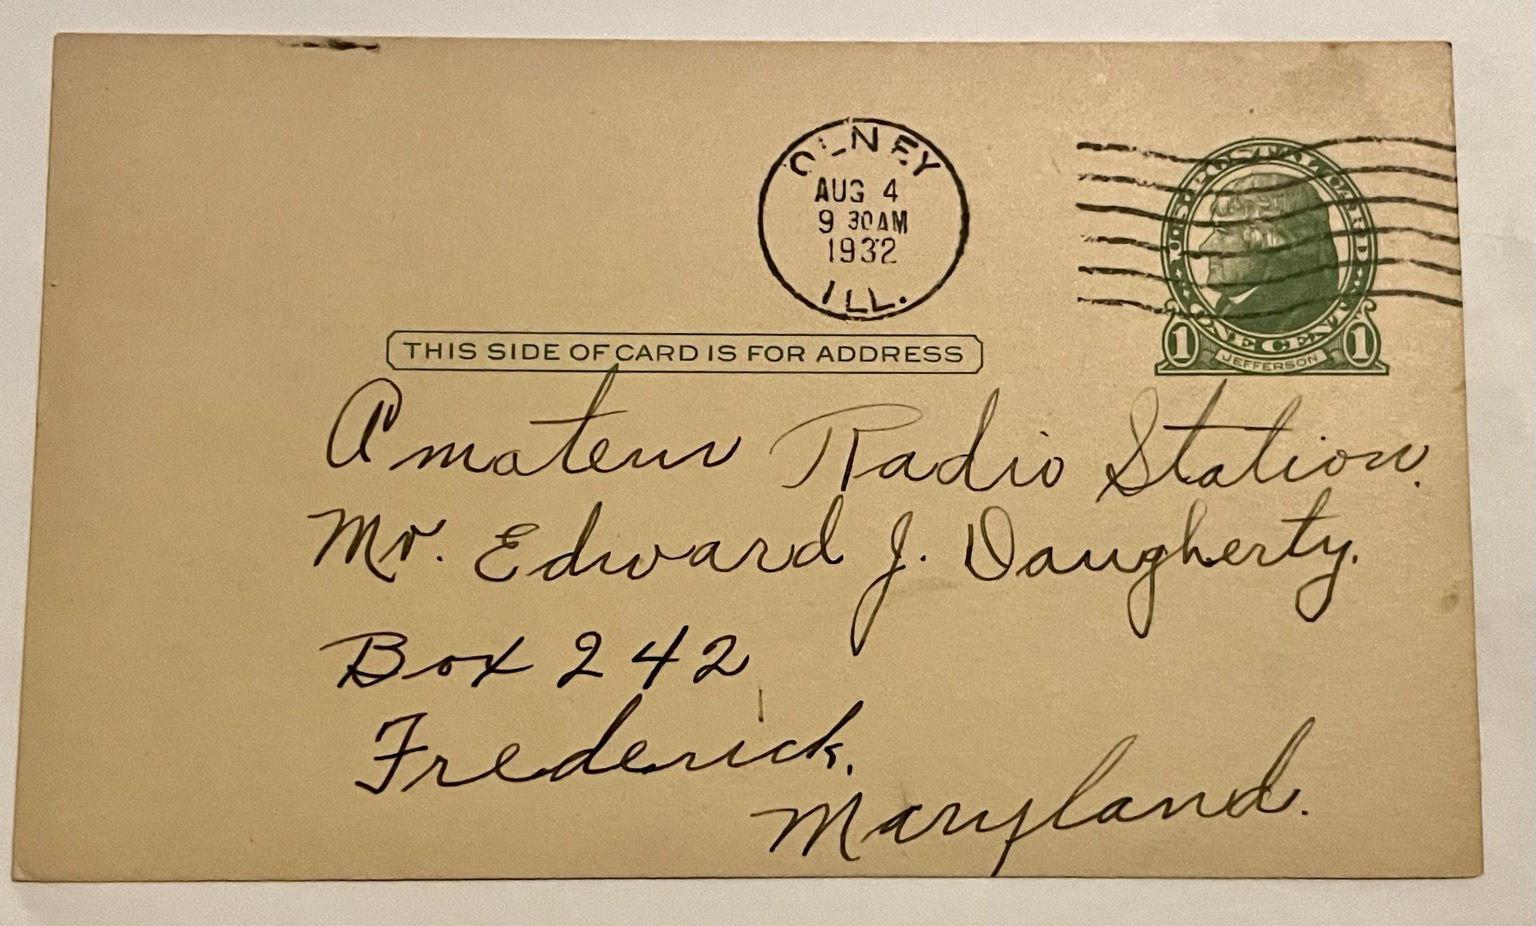 OLNEY
AUG 4
9 30AM
1932
ILL.
U.S. POSTAL CARD
ONE CENT
1 JEFFERSON 1
THIS SIDE OF CARD IS FOR ADDRESS
Amateur Radio Station.
Mr. Edward J. Daugherty.
Box 242
Frederick,
Maryland.